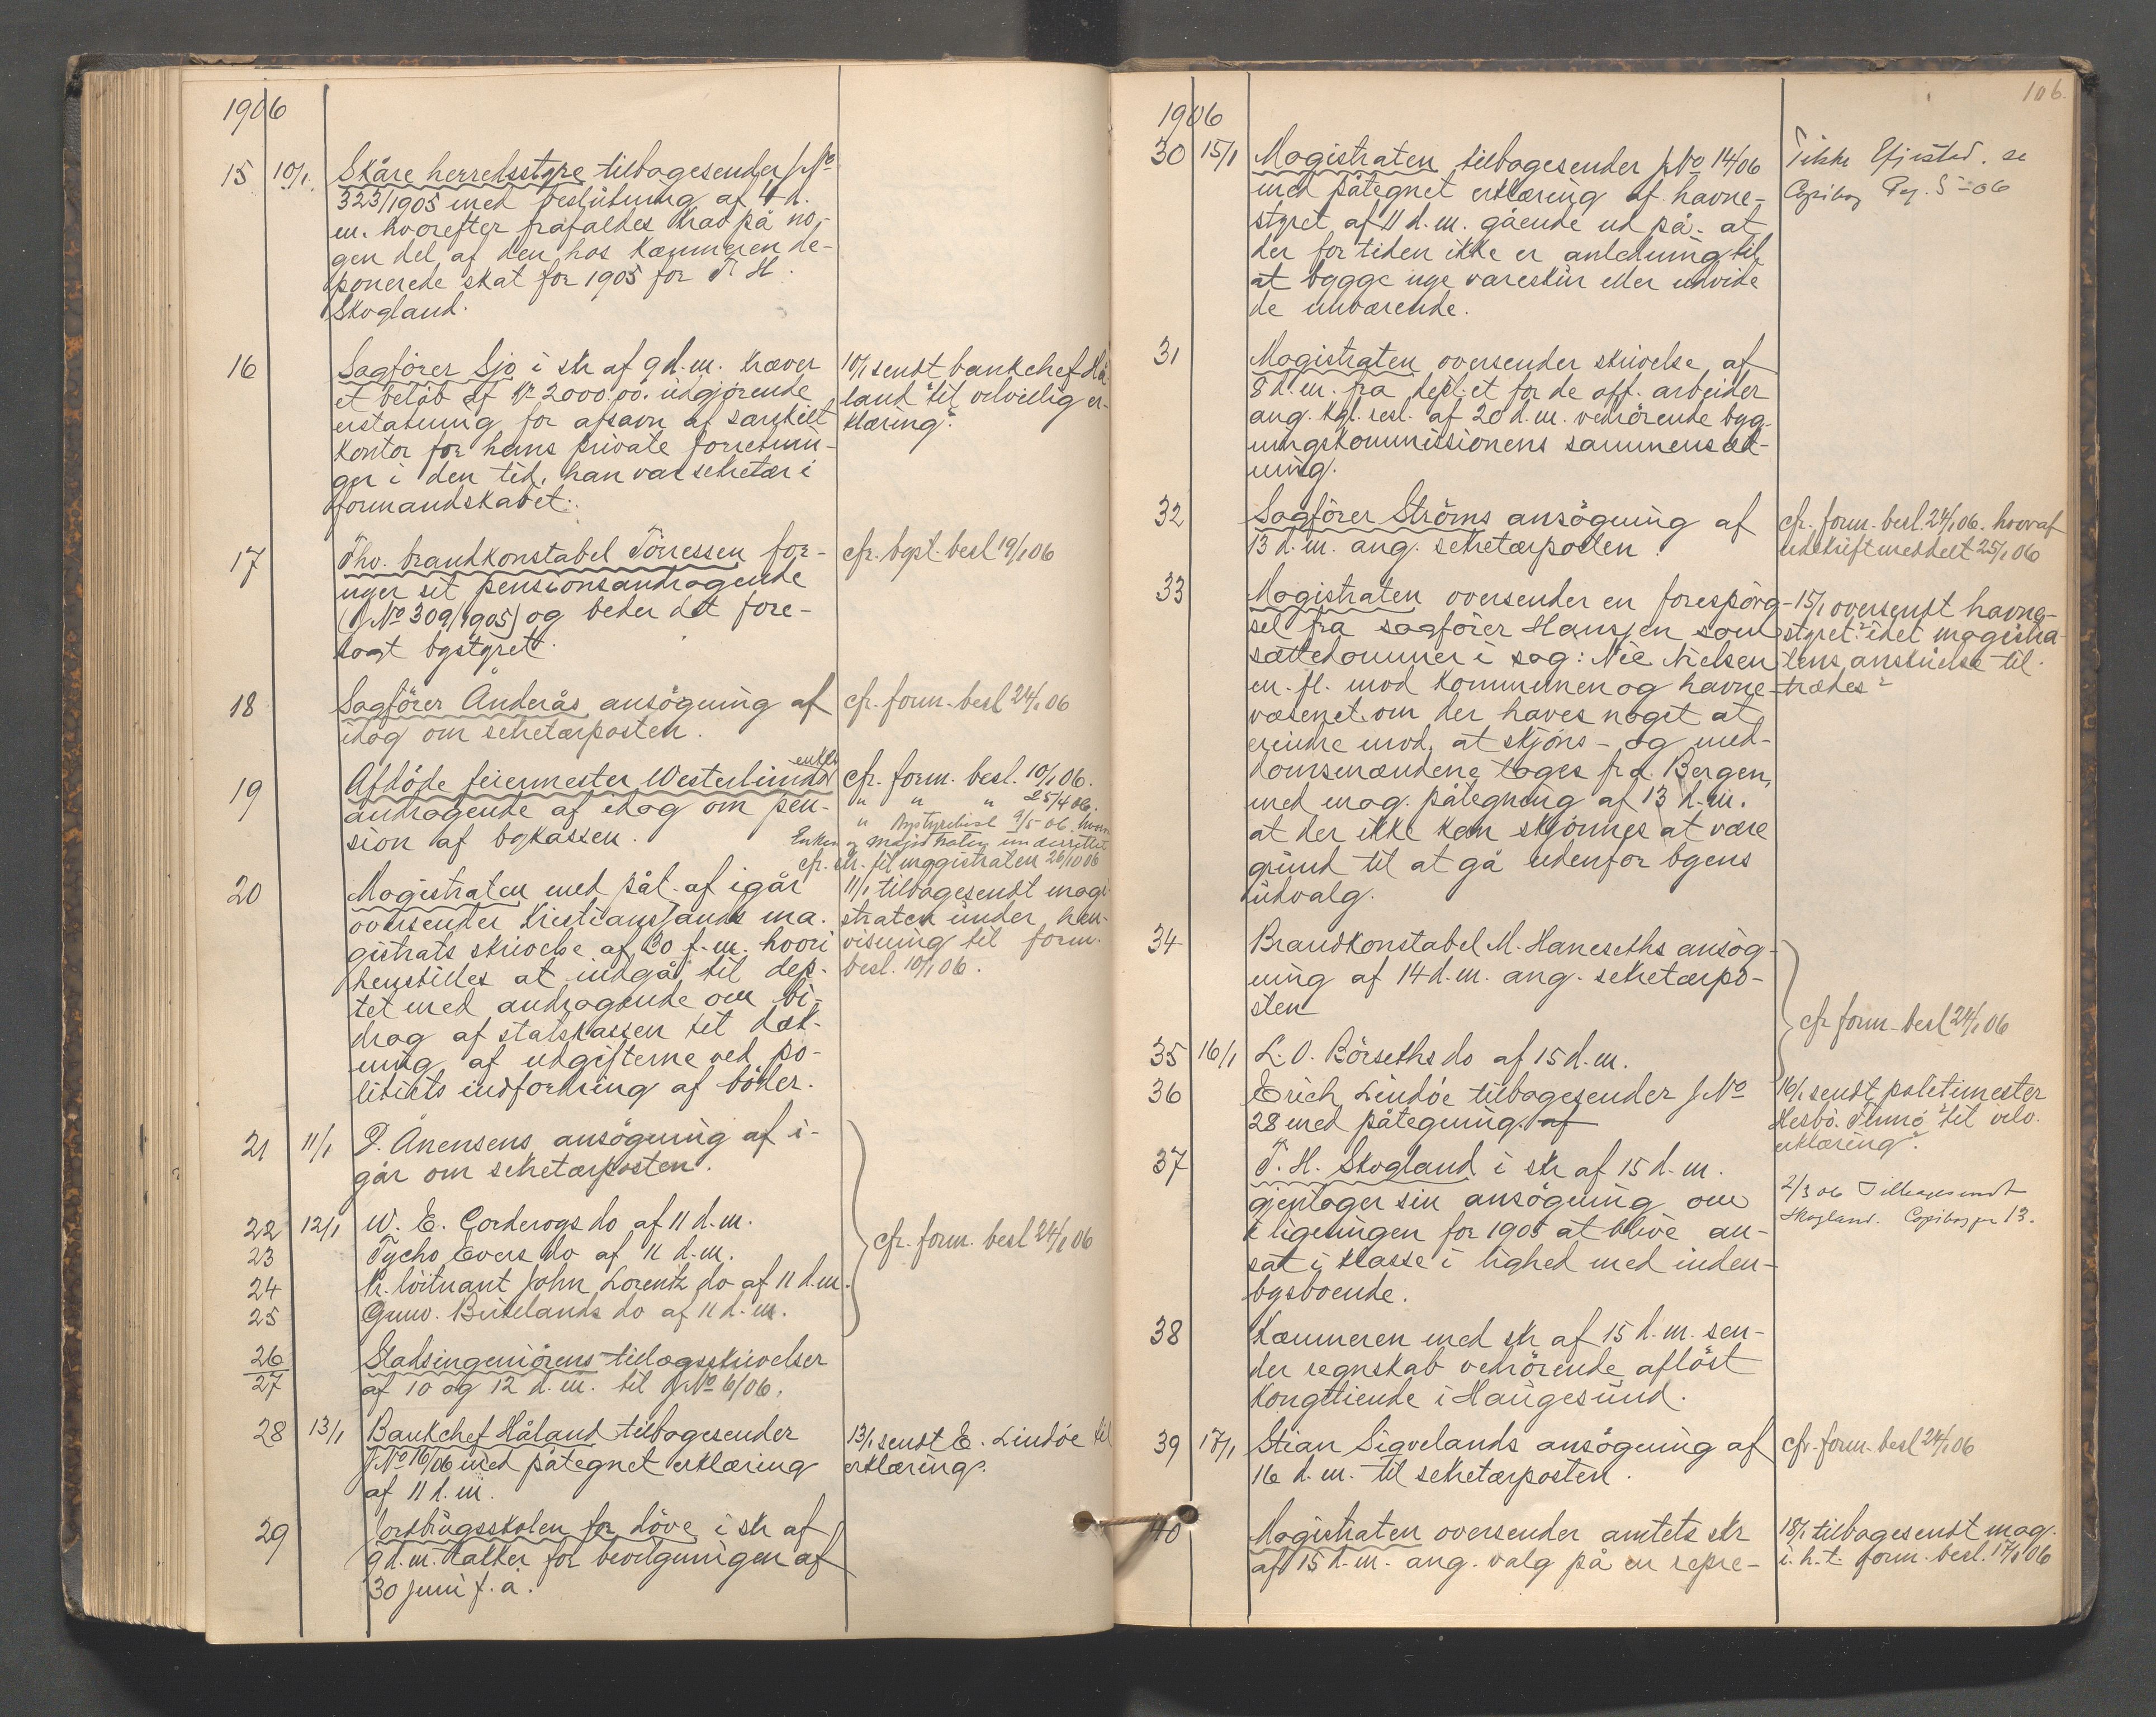 1906
15 10/1 Skåre herredsstyre tilbagesender J.No
323/1905 med beslutning af 4 d.
m. hvorefter frafaldes krav på no-
gen del af den hos kæmneren de-
ponerede skat for 1905 for T. H.
Skogland.
16 Sagfører Sjo i skr af 9 d.m. kræver
et beløb af Kr 2000.00. udgjørende
erstatning for afsavn af særskilt
kontor for hans private forretnin-
ger i den tid, han var sekretær i
formandskabet.
10/1 sendt bankchef Hå-
land "til velvillig er-
klæring".
17 Fhv. brandkonstabel Tønessen for-
nyer sit pensionsandragende
(J.No 309/1905) og beder det fore-
lagt bystyret.
cfr. byst. besl 19/1 06
18 Sagfører Anderås ansøgning af
idag om sekretærposten.
cfr. form. besl 24/1 06
19 Afdøde feiermester Westerlunds enkes
andragende af idag om pen-
sion af bykassen.
cfr. form. besl. 10/1 06.
" " " 25/4 06.
" Bystyrebesl 9/5 06. hvorom
Enken og magistraten underrettet
cfr. skr. til magistraten 26/10 06
20 Magistraten med påt. af igår
oversender Kristianssands ma-
gistrats skrivelse af 30 f.m. hvori
henstilles at indgå til dep-
tet med andragende om bi-
drag af statskassen til dæk-
ning af udgifterne ved po-
litiets indfordring af bøder.
11/1 tilbagesendt magi-
straten under hen-
visning til form.
besl. 10/1 06.
21 11/1 P. Anensens ansøgning af i-
går om sekretærposten.
22 12/1 W. E. Corderogs do af 11 d.m.
23 Tycho Evers do af 11 d.m.
24 Pr. løitnant John Lorentz do af 11 d.m.
25 Gunv. Birkelands do af 11 d.m.
cfr. form. besl 24/1 06
26
27 Stadsingeniørens tillægsskrivelser
af 10 og 12 d.m. til J.No 6/06.
28 13/1 Bankchef Håland tilbagesender
J.No 16/06 med påtegnet erklæring
af 11 d.m.
13/1 sendt E. Lindøe til
erklæring.
29 Fordbugsskolen for døve i skr af
9 d.m. takker for bevilgningen af
30 juni f.å.
106.
1906
30 15/1 Magistraten tilbagesender J.No 14/06
med påtegnet erklæring af havne-
styret af 11 d.m. gående ud på, at
der for tiden ikke er anledning til
at bygge nye vareskur eller udvide
de nuværende.
se
Copibog Pag. 5 - 06
31 Magistraten oversender skrivelse af
8 d.m. fra dept.et for de off. arbeider
ang. kgl. resl. af 20 d.m. vedrørende byg-
ningskommissionens sammensæt-
ning.
32 Sagfører Strøms ansøgning af
13 d.m. ang. sekretærposten.
cfr. form. besl. 24/1 06. hvoraf
udskrift meddelt 25/1 06
33 Magistraten oversender en forespørg-
sel fra sagfører Hansen som
sættedommer i sag: Nic. Nielsen
m. fl. mod kommunen og havne-
væsenet om der haves noget at
erindre mod, at skjøns- og med-
domsmændene tages fra Bergen,
med mag. påtegning af 13 d.m.
at der ikke kan skjønnes at være
grund til at gå udenfor byens
udvalg.
15/1 oversendt havne-
styret "idet magistra-
tens anskuelse til-
trædes"
34 Brandkonstabel M. Haneseths ansøg-
ning af 14 d.m. ang. sekretærpo-
sten
35 16/1 L. O. Børseths do af 15 d.m.
cfr form. besl 24/1 06
36 Erich Lindøe tilbagesender J.No
28 med påtegning. af
16/1 sendt politimester
Hesbø. Tromsø "til velv.
erklæring".
37 T. H. Skogland i skr af 15 d.m.
gjentager sin ansøgning om
i ligningen for 1905 at blive an-
sat i klasse i lighed med inden-
bysboende.
2/3 06 Tilbagesendt
Skogland. Copibog pg 13.
38 Kæmneren med skr af 15 d.m. sen-
der regnskab vedrørende afløst
kongetiende i Haugesund.
39 17/1 Stian Sigvelands ansøgning af
16 d.m. til sekretærposten.
cfr. form. besl 24/1 06
40 Magistraten oversender amtets skr
af 15 d.m. ang. valg på en repre-
18/1 tilbagesendt mag.
i. h. t. form. besl. 17/1 06